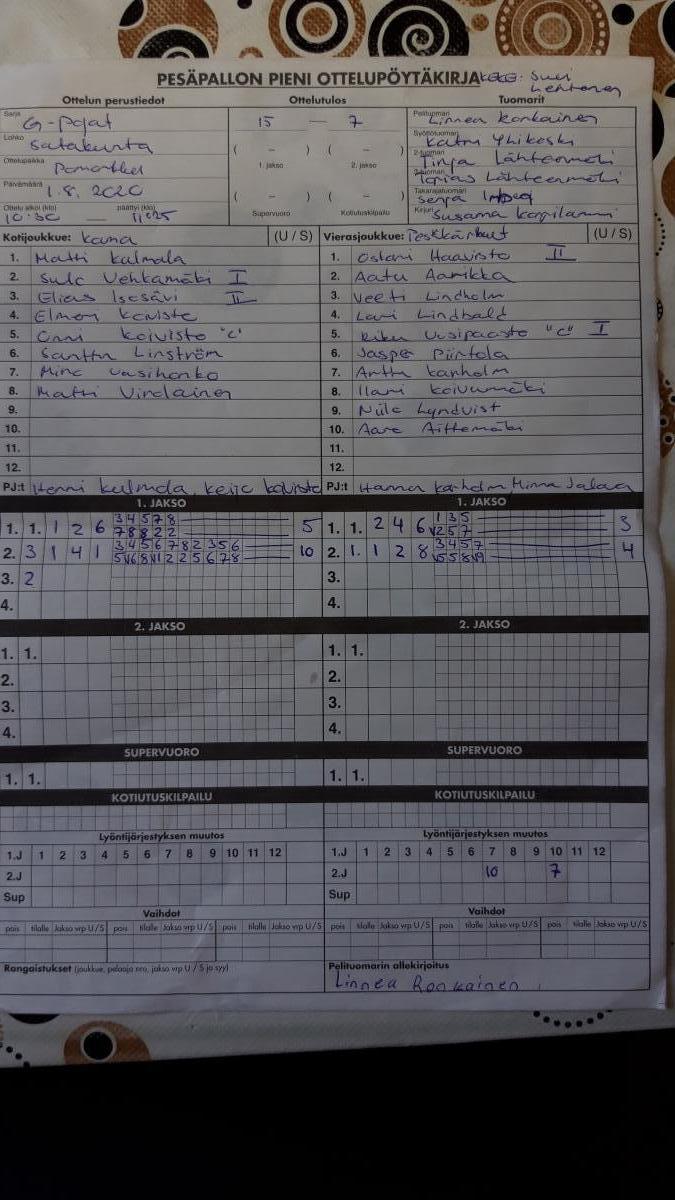 PESÄPALLON PIENI OTTELUPÖYTÄKIRJA
Ottelun perustiedot Ottelutulos Tuomarit
Sarja G-Pojat 15 — 7 Pelituomari Linnea Ronkainen
Lohko Satakunta ( – ) ( – ) Syöttötuomari Katru Ylikoski
Ottelupaikka 1. jakso 2. jakso 2-tuomari Tinja Lähteenmäki
Päivämäärä 1.8.2020 3-tuomari Lähteenmäki
( – ) ( – ) Takarajatuomari Senja
Ottelu alkoi (klo) 10:30 — päättyi (klo) 11:25 Supervuoro Kotiutuskilpailu Kirjuri
Kotijoukkue: (U / S) Vierasjoukkue: (U / S)
1. Matti Kulmala 1. Haavisto II
2. Sulo Vehkamäki I 2. Aatu Aarikka
3. Elias Isosävi II 3. Veeti Lindholm
4. Elmeri Koivisto 4. Lari Lindblad
5. Onni Koivisto "C" 5. Riku Uusipaasto "C" I
6. Santtu Linström 6. Jasper Piirtola
7. Mino 7. Arttu Karholm
8. Matti Virolainen 8. Ilari Koivumäki
9. 9. Niilo Lyndqvist
10. 10. Aaro Aittomäki
11. 11.
12. 12.
PJ:t Henni Kulmala, Keijo Koivisto PJ:t Hanna Karholm, Minna
1. JAKSO 1. JAKSO
3 4 5 7 8 1 3 5
1. 1. 1 2 6 7 8 8 2 2 5 1. 1. 2 4 6 2 5 7 3
3 4 5 6 7 8 2 3 5 6 3 4 5 7
2. 3 1 4 1 10 2. 1. 1 2 8 4
3. 2 3.
4. 4.
2. JAKSO 2. JAKSO
1. 1. 1. 1.
2. 2.
3. 3.
4. 4.
SUPERVUORO SUPERVUORO
1. 1. 1. 1.
KOTIUTUSKILPAILU KOTIUTUSKILPAILU
Lyöntijärjestyksen muutos Lyöntijärjestyksen muutos
1.J 1 2 3 4 5 6 7 8 9 10 11 12 1.J 1 2 3 4 5 6 7 8 9 10 11 12
2.J 2.J 10 7
Sup Sup
Vaihdot Vaihdot
pois tilalle Jakso vrp U/S pois tilalle Jakso vrp U/S pois tilalle pois tilalle Jakso vrp U/S pois tilalle Jakso vrp U/S pois tilalle Jakso vrp U/S
Rangaistukset (joukkue, pelaaja nro, jakso vrp U / S ja syy) Pelituomarin allekirjoitus
Linnea Ronkainen